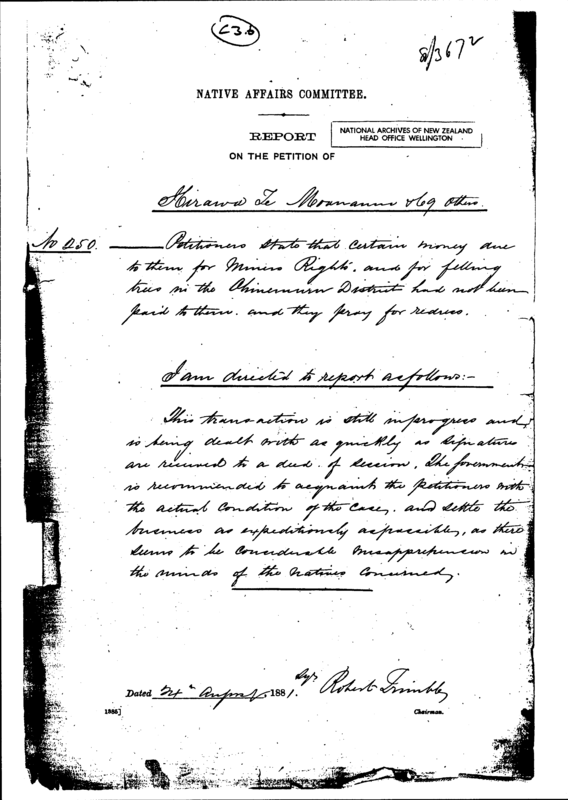 C3.6
81/3672
NATIVE AFFAIRS COMMITTEE.
REPORT
NATIONAL ARCHIVES OF NEW ZEALAND
HEAD OFFICE WELLINGTON
ON THE PETITION OF
Hirawa Te Moananui & 69 Others.
No 250. Petitioners state that certain money due
to them for Miners Rights, and for felling
trees in the Ohinemuri District had not been
paid to them. and they pray for redress.
I am directed to report as follows:-
This transaction is still in progress and
is being dealt with as quickly as signatures
are received to a deed of cession. The Government
is recommended to acquaint the petitioners with
the actual condition of the case, and settle the
business as expeditiously as possible, as there
seems to be considerable misapprehension in
the minds of the Natives concerned.
Dated 24th August 1881. Robert Trimble
1386] Chairman.